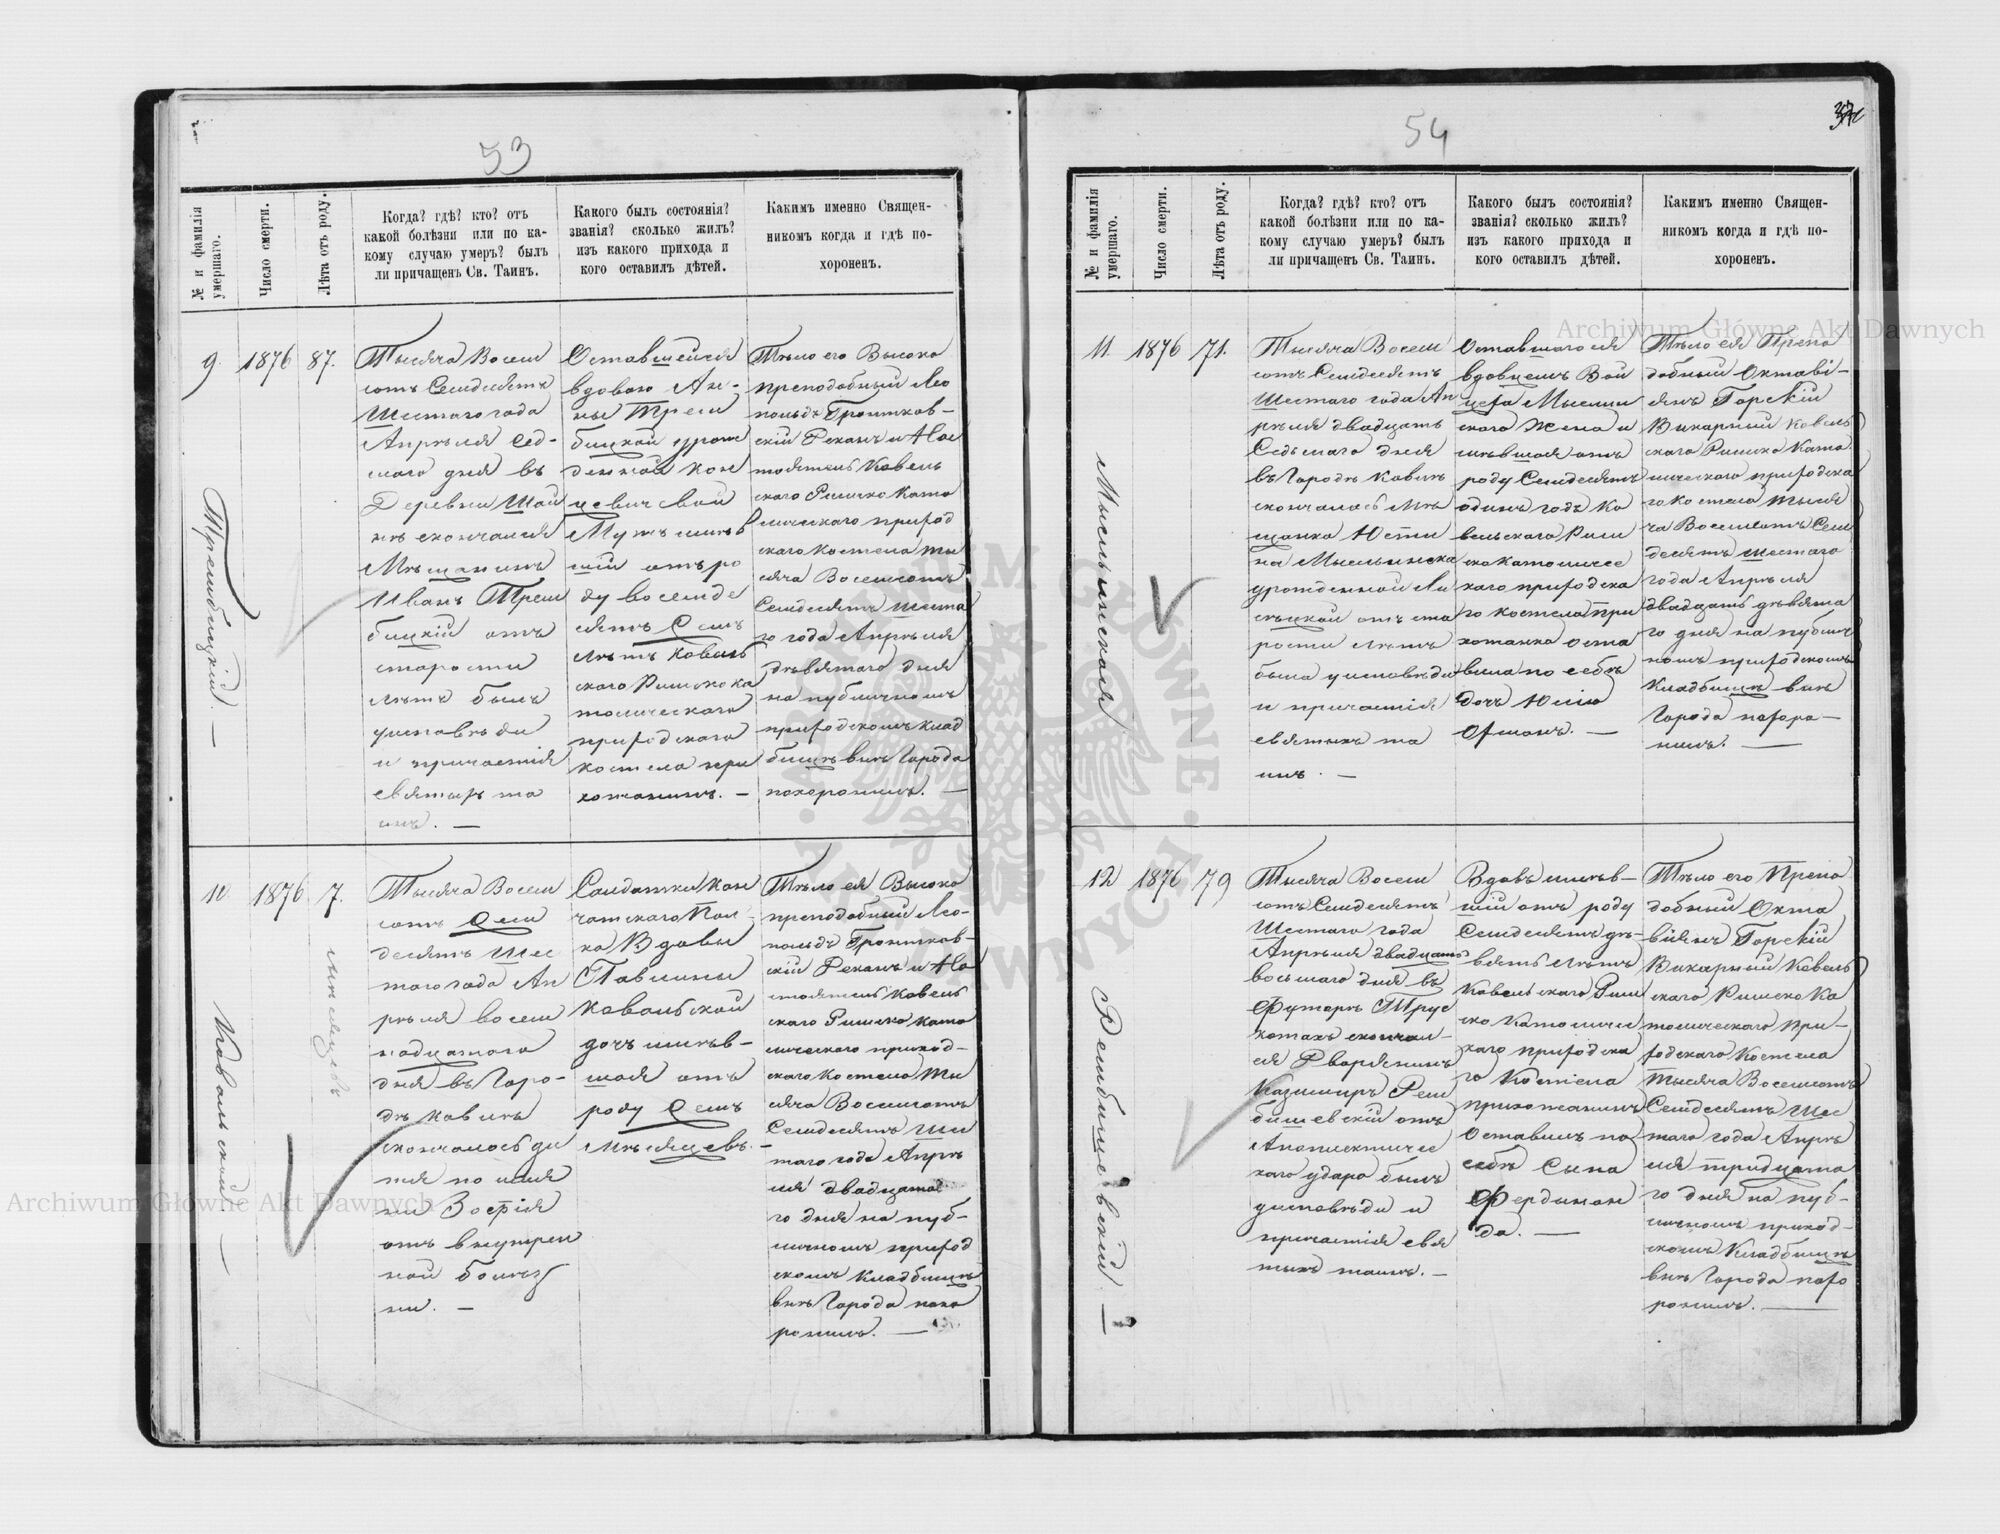 53
№ и фамилія умершаго.
Число смерти.
Лѣта отъ роду.
Когда? гдѣ? кто? отъ
какой болѣзни или по ка-
кому случаю умеръ? былъ
ли причащенъ Св. Таинъ.
Какого былъ состоянія?
званія? сколько жилъ?
изъ какого прихода и
кого оставилъ дѣтей.
Какимъ именно Священ-
никомъ когда и гдѣ по-
хороненъ.
9.
Трембицкій. —
1876
87.
Тысяча Восем
сотъ Семдесятъ
Шестаго года
Апрѣля Сед-
маго дня въ
Деревни
скончался
Мѣщанинъ
Иванъ Трем
бицкій отъ
старости
лѣтъ былъ
уисповѣди
и причастія
святыхъ та
инъ. —
Оставшейся
вдовою Ан-
ны Трем
бицкой урож
денной Кон
цевичевой
Мужъ имѣв
шій отъ ро
ду восемде
сятъ Семь
лѣтъ Ковель
скаго Римско ка
толическаго
приходскаго
костела при
хожанинъ. —
Тѣло его Высоко
преподобный Лео
польдъ Броников-
скій Деканъ и Нас
тоятель Ковель
скаго Римско Като
лическаго приход
скаго Костела ты
сяча Восемсотъ
Семдесятъ шеста
го года Апрѣля
дѣвятаго дня
на публичномъ
приходскомъ клад
бищѣ внѣ Города
похоронилъ. —
10
Ковальский —
1876
7.
мѣсяцевъ
Тысяча Восем
сотъ Сем
десятъ Шес
таго года Ап
рѣля восем
надцатаго
дня въ Горо-
дѣ Ковлѣ
скончалось ди
тя по имя
ни Зофія
отъ внутрен
ной болѣз
ни. —
Солдатки Кам
чатскаго Пол
ка Вдовы
Павлины
Ковальской
дочь имѣв-
шая отъ
роду Семь
мѣсяцевъ. —
Тѣло ея Высоко
преподобный Лео-
польдъ Броников-
скій Деканъ и На
стоятель Ковель
скаго Римско Като
лическаго приход-
скаго Костела Ты
сяча Восемсотъ
Семдесятъ Шес
таго года Апрѣ
ля двадцата
го дня на пуб-
личномъ приход
скомъ Кладбищѣ
внѣ Города похо
ронилъ. —
54
№ и фамилія умершаго.
Число смерти.
Лѣта отъ роду.
Когда? гдѣ? кто? отъ
какой болѣзни или по ка-
кому случаю умеръ? былъ
ли причащенъ Св. Таинъ.
Какого былъ состоянія?
званія? сколько жилъ?
изъ какого прихода и
кого оставилъ дѣтей.
Какимъ именно Священ-
никомъ когда и гдѣ по-
хороненъ.
11.
Мыслинская
1876
71.
Тысяча Восем
сотъ Семдесятъ
Шестаго года Ап
рѣля двадцать
Седьмаго дня
въ Городѣ Ковлѣ
скончалась Мѣ
щанка Юсти
на Мыслинска
урожденной
отъ ста
рости лѣтъ
была уисповѣди
и причастія
святыхъ та
инъ. —
Оставшагося
вдовцемъ Вой
цеха Мыслин
скаго Жена и
мѣвшая отъ
роду Семдесятъ
одинъ годъ Ко
вельскаго Рим
ско католичес
каго приходска
го костела при
хожанка оста
вила по себѣ
дочь Юлію
Офманъ. —
Тѣло ея Препо
добный Октаві-
янъ Горскій
Викарный Ковель
скаго Римско Като
лическаго приходска
го Костела тыся
ча Восемсотъ Сем
десятъ шестаго
года Апрѣля
двадцать дѣвята
го дня на публич
номъ приходскомъ
Кладбищѣ внѣ
Города похоро-
нилъ. —
12
Рембишевскій. —
1876
79
Тысяча Восем
сотъ Семдесятъ
Шестаго года
Апрѣля двадцать
восьмаго дня въ
Футорѣ Трус
котахъ скончал-
ся Дворянинъ
Казимиръ Рем
бишевскій отъ
Апоплексичес
каго удара былъ
уисповѣди и
причастія свя
тыхъ таинъ. —
Вдовъ имѣв-
шій отъ роду
Семдесятъ дѣ-
вять лѣтъ
Ковельскаго Рим
ско Католичес
каго приходска
го Костела
прихожанинъ
Оставилъ по
себѣ Сына
Фердинан
да. —
Тѣло его Препо
добный Окта
віянъ Горскій
Викарный Ковель
скаго Римско Ка
толическаго При-
ходскаго Костела
Тысяча Восемсотъ
Семдесятъ Шес
таго года Апрѣ
ля тридцата
го дня на пуб-
личномъ приход-
скомъ Кладбищѣ
внѣ Города похо
ронилъ. —
Archiwum Główne Akt Dawnych
Archiwum Główne Akt Dawnych